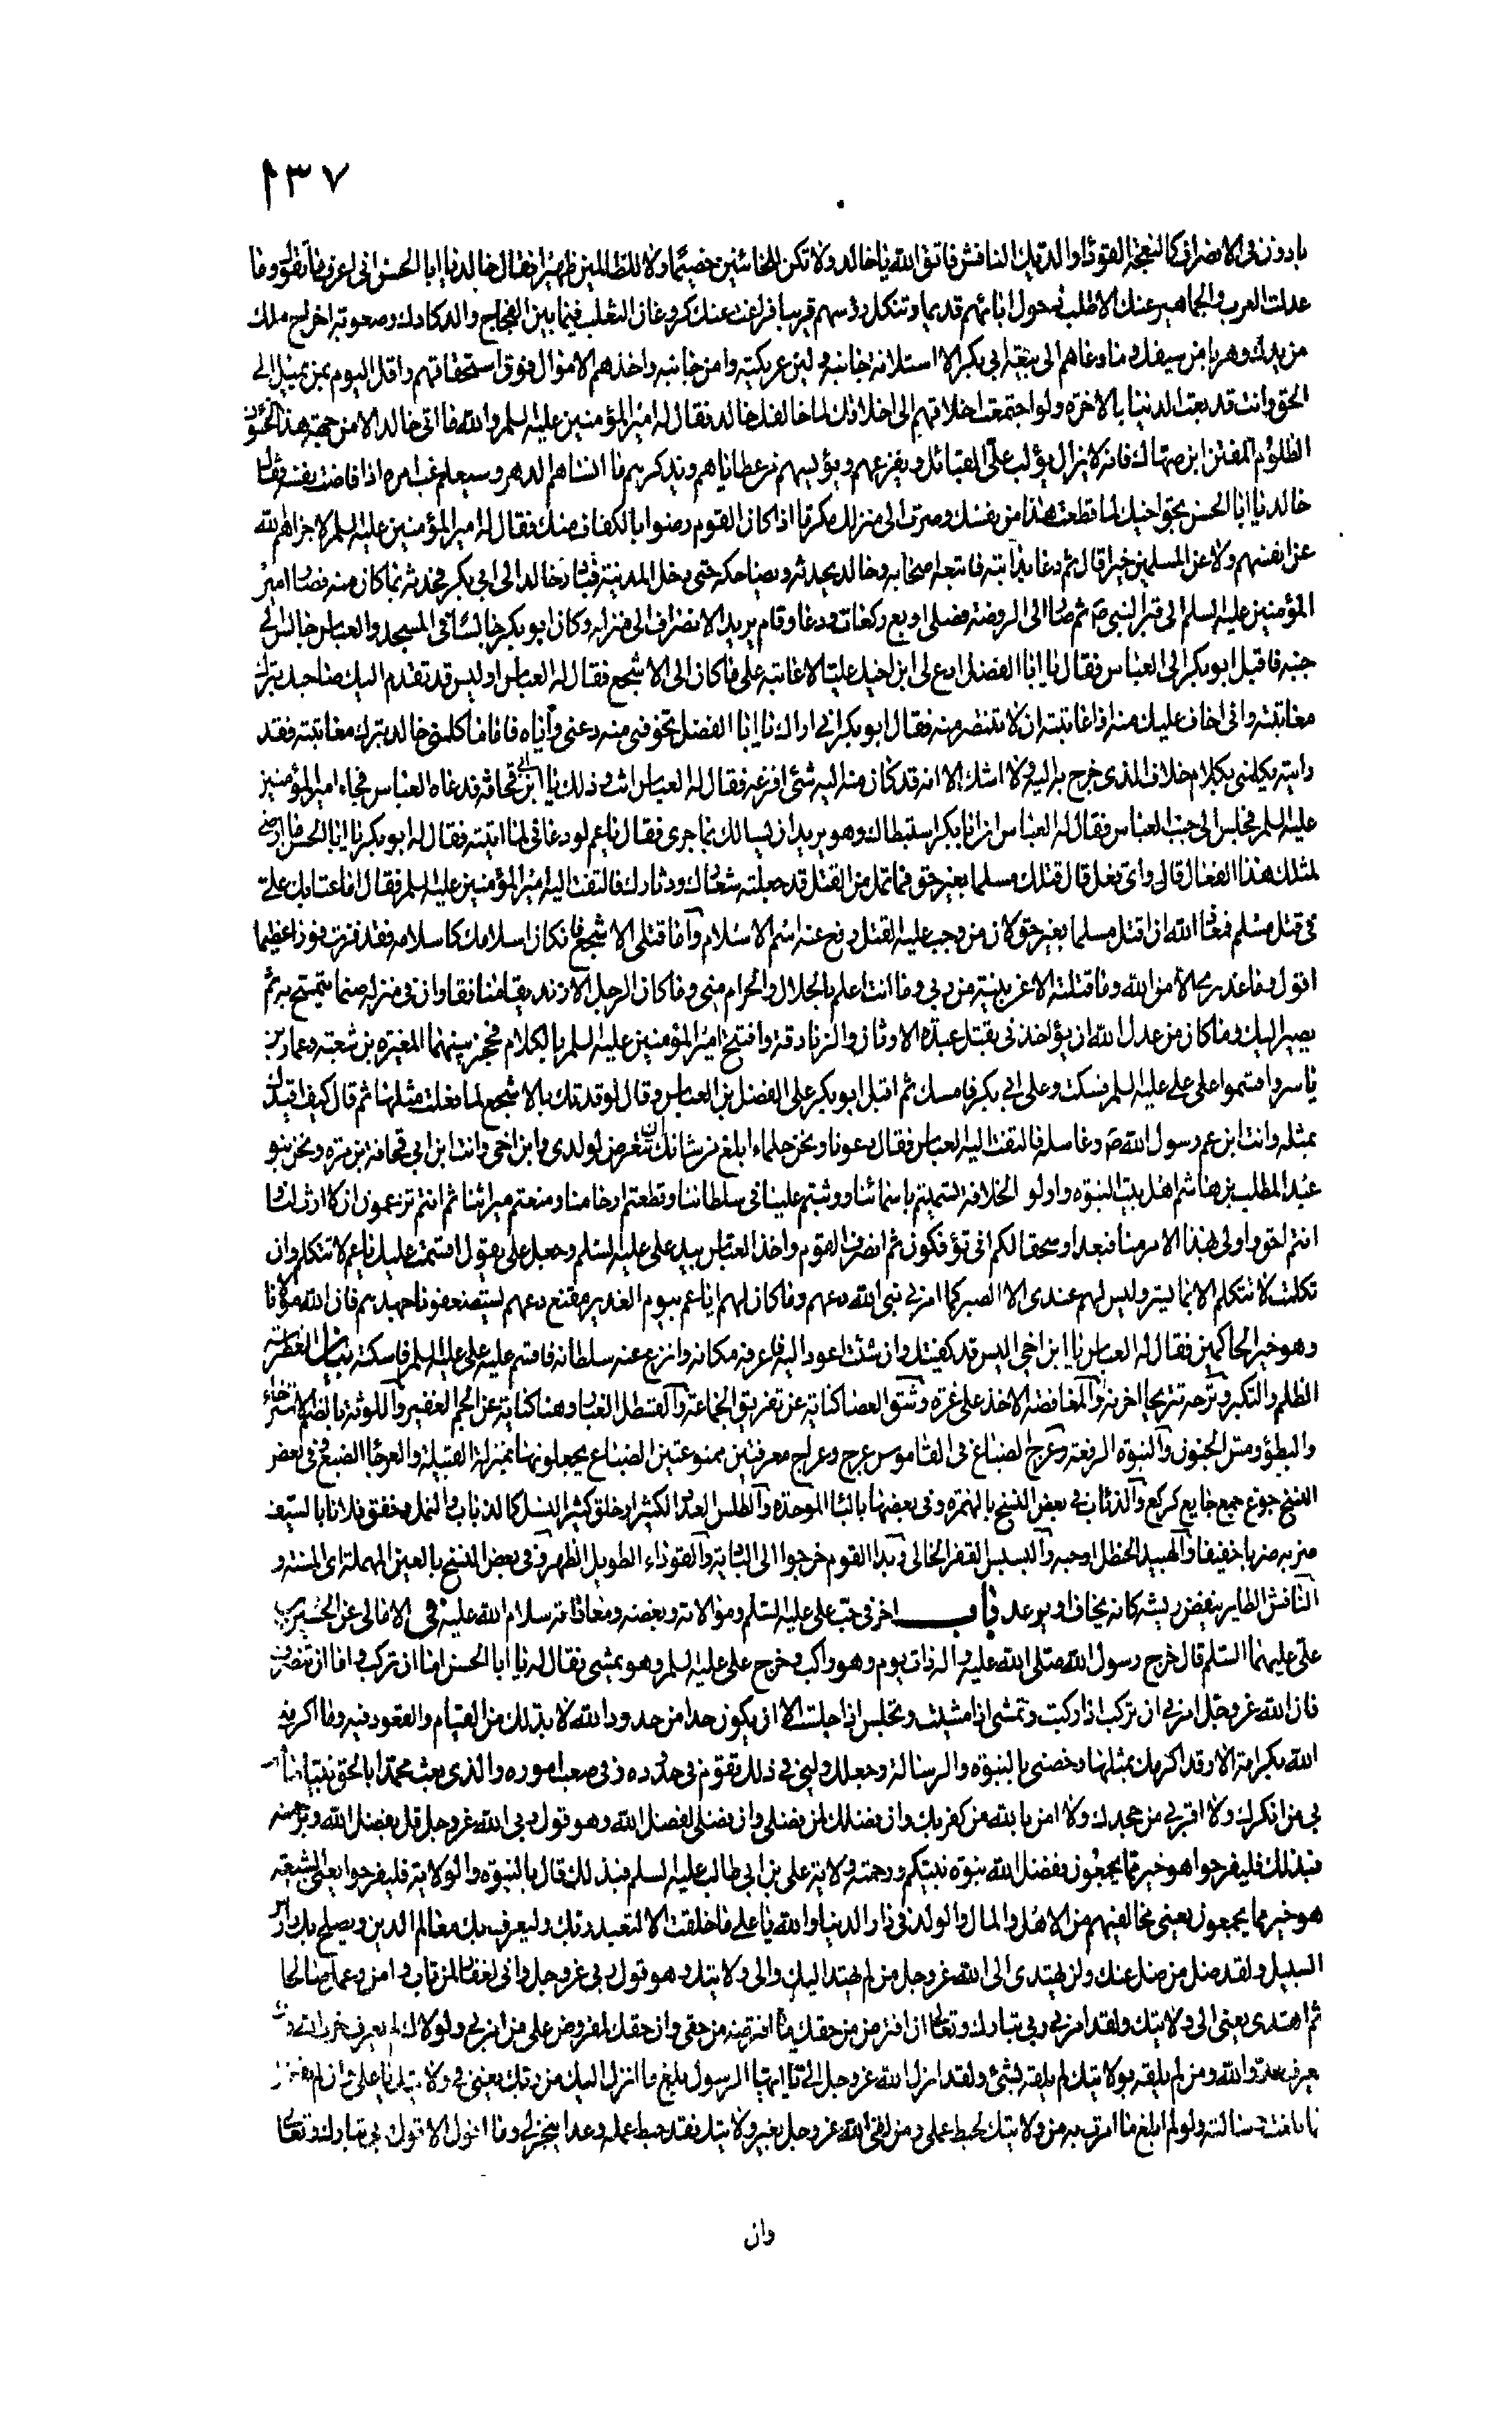 ١٣٧
بادون في الانصراف كالنعجة القوداء والديك النافش فاتق الله يا خالد ولا تكن للخائنين خصيما ولا للظالمين ظهيرا فقال خالد يا ابا الحسن اني اعرف ما تقول وما
عدلت العرب والجماهير عنك الا طلب ذحول ابائهم قديما وتنكل رؤسهم قريبا فراغت عنك كروغان الثعلب فيما بين الفجاج والدكادك وصعوبة اخراج ملك
من يدك وهربا من سيفك وما دعاهم الى بيعة ابي بكر الا استلانة جانبه ولين عريكته وامن جانبه واخذهم الاموال فوق استحقاقهم ولقل اليوم من يميل الى
الحق وانت قد بعت الدنيا بالاخرة ولو اجتمعت اخلاقهم الى اخلاقك لما خالفك خالد فقال له امير المؤمنين عليه السلم والله ما اتى خالد الا من جهة هذا الخؤن
الظلوم المفتن ابن صهاك فانه لا يزال يؤلب علي القبائل ويفزعهم ويؤيسهم من عطاياهم ويذكرهم ما انساهم الدهر وسيعلم غب امره اذا فاضت نفسه فقال
خالد يا ابا الحسن بحق اخيك لما قطعت هذا من نفسك وصرت الى منزلك مكرما اذا كان القوم رضوا بالكفاف منك فقال له امير المؤمنين عليه السلم لا جزاهم الله
عن انفسهم ولا عن المسلمين خيرا قال ثم دعا بدابته فاتبعه اصحابه وخالد يحدثه ويضاحكه حتى دخل المدينة فبادر خالد الى ابي بكر فحدثه بما كان منه فصار امير
المؤمنين عليه السلم الى قبر النبي ص ثم صار الى الروضة فصلى اربع ركعات ودعا وقام يريد الانصراف الى منزله وكان ابو بكر جالسا في المسجد والعباس جالس الى
جنبه فاقبل ابو بكر الى العباس فقال يا ابا الفضل ادع لي ابن اخيك عليا لاعاتبه على ما كان الى الاشجع فقال له العباس اوليس قد تقدم اليك صاحبك بترك
معاتبته واني اخاف عليك منه اذا عاتبته ان لا تنتصر منه فقال ابو بكر اني اراك يا ابا الفضل تخوفني منه دعني واياه فاما ما كلمني خالد بترك معاتبته فقد
رايته يكلمني بكلام خلاف الذي خرج به اليه ولا اشك الا انه قد كان منه اليه شئ افزعه فقال له العباس انت وذلك يا ابن ابي قحافة فدعاه العباس فجاء امير المؤمنين
عليه السلم فجلس الى جنب العباس فقال له العباس ان ابا بكر استبطاك وهو يريد ان يسالك بما جرى فقال يا عم لو دعاني لما اتيته فقال له ابو بكر يا ابا الحسن ما ارضى
لمثلك هذا الفعال قال واي فعل قال قتلك مسلما بغير حق فما تمل من القتل قد جعلته شعارك ودثارك فالتفت اليه امير المؤمنين عليه السلم فقال اما عتابك علي
في قتل مسلم فمعاذ الله ان اقتل مسلما بغير حق لان من وجب عليه القتل رفع عنه اسم الاسلام واما قتلي الاشجع فان كان اسلامك كاسلامه فقد فزت فوزا عظيما
اقول وما عذري الا من الله وما قتلته الا عن بينة من ربي وما انت اعلم بالحلال والحرام مني وما كان الرجل الا زنديقا منافقا وان في منزله صنما يتمسح به ثم
يصير اليك وما كان من عدل الله ان يؤاخذني بقتل عبدة الاوثان والزنادقة وافتتح امير المؤمنين عليه السلم بالكلام فحجز بينهما المغيرة بن شعبة وعمار بن
ياسر واقسموا على علي عليه السلم فسكت وعلى ابي بكر فامسك ثم اقبل ابو بكر على الفضل بن العباس وقال لو قدتك بالاشجع لما فعلت مثلها ثم قال كيف اقيدك
بمثله وانت ابن عم رسول الله ص وغاسله فالتفت اليه العباس فقال دعونا ونحن حلماء ابلغ من شانك ان تتعرض لولدي وابن اخي وانت ابن ابي قحافة بن مرة ونحن بنو
عبد المطلب بن هاشم اهل بيت النبوة واولو الخلافة تسميتم باسمائنا ووثبتم علينا في سلطاننا وقطعتم ارحامنا ومنعتم ميراثنا ثم انتم تزعمون ان لا ارث لنا
انتم احق واولى بهذا الامر منا فبعدا وسحقا لكم انى تؤفكون ثم انصرف القوم واخذ العباس بيد علي عليه السلم وجعل علي يقول اقسمت عليك يا عم لا تتكلم وان
تكلمت لا تتكلم الا بما يسر وليس لهم عندي الا الصبر كما امرني نبي الله دعهم وما كان لهم يا عم بيوم الغدير مقنع دعهم يستضعفونا جهدهم فان الله مولانا
وهو خير الحاكمين فقال له العباس يا ابن اخي اليس قد كفيتك وان شئت اعود اليه فاعرفه مكانه وانزع عنه سلطانه فاقسم عليه علي عليه السلم فاسكته بيان الغطرسة
الظلم والتكبر وترحه تتريحا احزنه والمغافصة الاخذ على غرة وشق العصا كناية عن تفريق الجماعة والقسطل الغبار وهنا كناية عن الجم الغفير واللوثة بالضم الاسترخاء
والبطؤ ومس الجنون والنبوة الرفعة وعرج الضباع في القاموس عرج وعراج معرفتين ممنوعتين الضباع يجعلونها بمنزلة القبيلة والعرجا الضبع وفي بعض
النسخ جوع جمع جايع كركع والذئاب في بعض النسخ بالهمزة وفي بعضها بالباء الموحدة والطلس العدد الكثير او خلق كثير النسل كالذباب والنمل وخفق فلانا بالسيف
ضربه ضربا خفيفا والهبيد الحنظل او حبه والبسبس القفر الخالي وبدا القوم خرجوا الى البادية والقوداء الطويل الظهر وفي بعض النسخ بالعين المهملة اي المسنة و
النافش الطاير ينفض ريشه كانه يخاف او يرعد باب اخر في حب علي عليه السلم وموالاته وبغضه ومعاداته سلام الله عليه في الامالي عن الحسين بن
علي عليهما السلم قال خرج رسول الله صلى الله عليه واله ذات يوم وهو راكب وخرج علي عليه السلم وهو يمشي فقال له يا ابا الحسن اما ان تركب واما ان تنصرف
فان الله عز وجل امرني ان تركب اذا ركبت وتمشي اذا مشيت وتجلس اذا جلست الا ان يكون حدا من حدود الله لا بد لك من القيام والقعود فيه وما اكرمني
الله بكرامة الا وقد اكرمك بمثلها وخصني بالنبوة والرسالة وجعلك وليي في ذلك تقوم في حدوده وفي صعب اموره والذي بعث محمدا بالحق نبيا ما امن
بي من انكرك ولا اقر بي من جحدك ولا امن بالله من كفر بك وان فضلك لمن فضلي وان فضلي لفضل الله وهو قول ربي الله عز وجل قل بفضل الله وبرحمته
فبذلك فليفرحوا هو خير مما يجمعون ففضل الله نبوة نبيكم ورحمته ولاية علي بن ابي طالب عليه السلم فبذلك قال بالنبوة والولاية فليفرحوا يعني الشيعة
هو خير مما يجمعون يعني مخالفيهم من الاهل والمال والولد في دار الدنيا والله يا علي ما خلقت الا لتعبد ربك وليعرف بك معالم الدين ويصلح بك دارس
السبيل ولقد ضل من ضل عنك ولن يهتدي الى الله عز وجل من لم يهتد اليك والى ولايتك وهو قول ربي عز وجل واني لغفار لمن تاب وامن وعمل صالحا
ثم اهتدى يعني الى ولايتك ولقد امرني ربي تبارك وتعالى ان افترض من حقك ما افترضه من حقي وان حقك لمفروض على من امن بي ولولاك لم يعرف حزب الله وبك
يعرف عدو الله ومن لم يلقه بولايتك لم يلقه بشئ ولقد انزل الله عز وجل الي يا ايها الرسول بلغ ما انزل اليك من ربك يعني في ولايتك يا علي وان لم تفعل
فما بلغت رسالته ولو لم ابلغ ما امرت به من ولايتك لحبط عملي ومن لقى الله عز وجل بغير ولايتك فقد حبط عمله وعدا ينجز لي وما اقول الا قول ربي تبارك وتعالى
وان